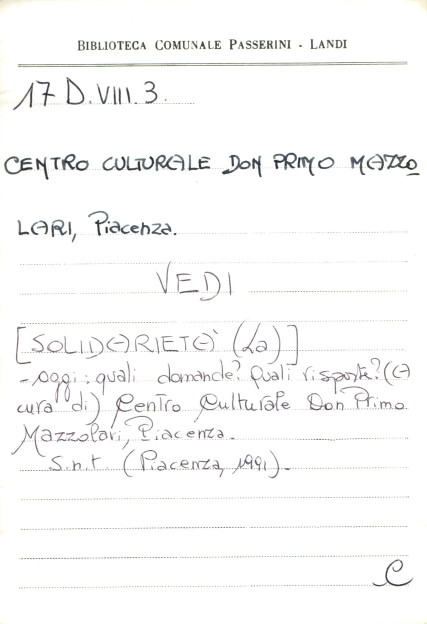 BIBLIOTECA COMUNALE PASSERINI - LANDI
17 D.VIII.3.
CENTRO CULTURALE DON PRIMO MAZZO
LARI, Piacenza.
VEDI
[SOLIDARIETA' (La)]
- oggi: quali domande? Quali risposte? (A
cura di) Centro Culturale Don Primo
Mazzolari, Piacenza.
S.n.t. (Piacenza, 1991).
C